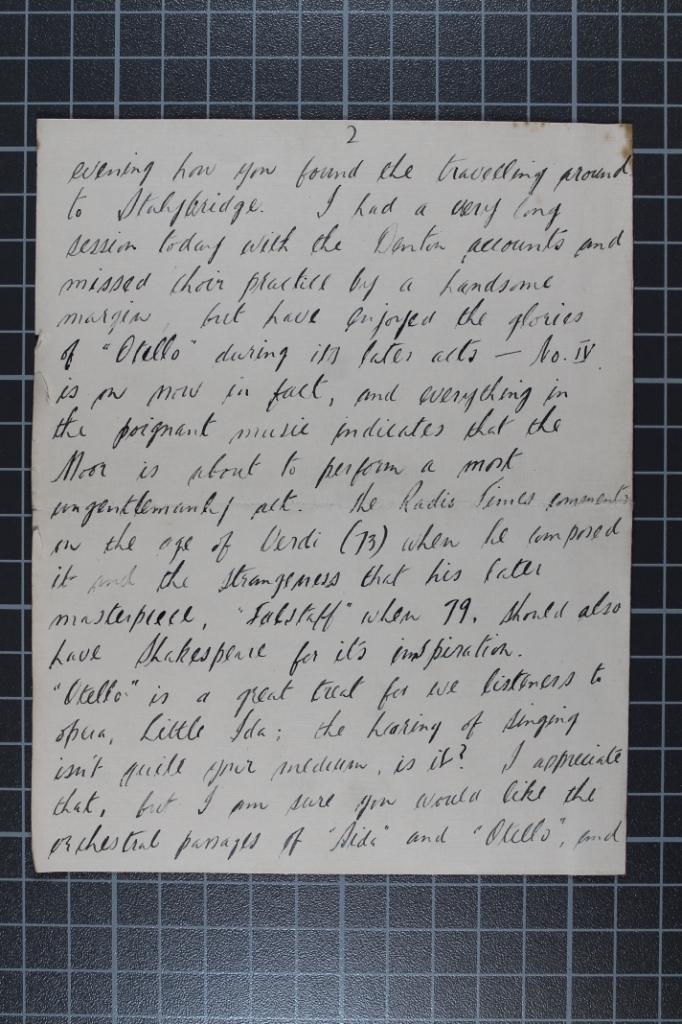 2
evening how you found the travelling around
to Stalybridge. I had a very long
session today with the Denton accounts and
missed choir practice by a handsome
margin, but have enjoyed the glories
of "Otello" during its later acts — No. IV
is on now in fact, and everything in
the poignant music indicates that the
Moor is about to perform a most
ungentlemanly act. The Radio Times comments
on the age of Verdi (73) when he composed
it and the strangeness that his later
masterpiece, "Falstaff" when 79, should also
have Shakespeare for it's inspiration.
"Otello" is a great treat for we listeners to
opera, Little Ida; the hearing of singing
isn't quite your medium, is it? I appreciate
that, but I am sure you would like the
orchestral passages of "Aida" and "Otello", and